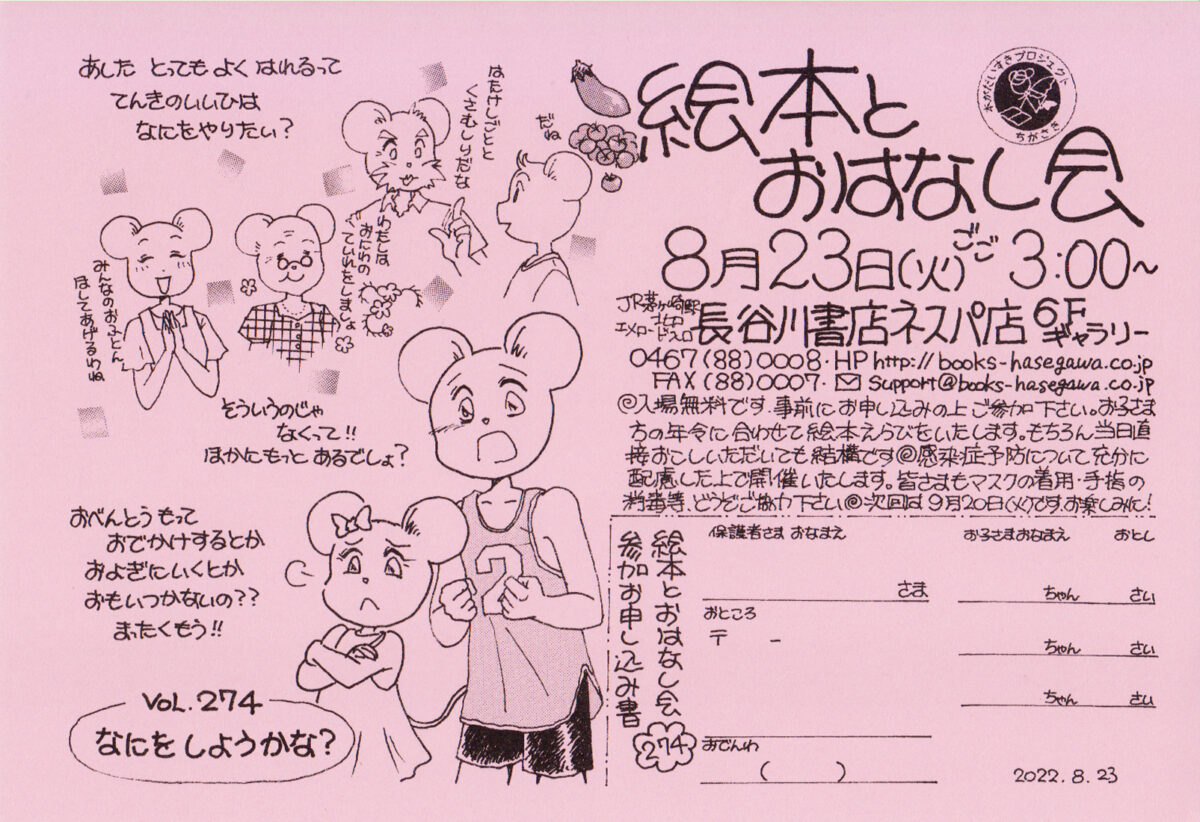 あした とっても よく はれるって
てんきのいいひは
なにをやりたい?
はたけしごとと
くさむしりだな
だね
わたしは
おにわの
ていれをしましょ
みんなのおふとん
ほしてあげるわね
そういうのじゃ
なくって!!
ほかにもっと あるでしょ?
おべんとう もって
おでかけするとか
およぎにいくとか
おもいつかないの??
まったくもう!!
VOL.274
なにを しようかな?
本がだいすきプロジェクト
ちがさき
絵本と
おはなし会
8月23日(火)ごご3:00~
JR茅ヶ崎駅
北口
エメロード
長谷川書店ネスパ店 6F
ギャラリー
0467(88)0008・HP http://books-hasegawa.co.jp
FAX (88)0007・✉ support@books-hasegawa.co.jp
◎入場無料です.事前にお申し込みの上ご参加下さい。お子さま
方の年令に合わせて絵本えらびをいたします。もちろん当日直
接おこしいただいても結構です◎感染症予防について充分に
配慮した上で開催いたします。皆さまもマスクの着用・手指の
消毒等、どうぞご協力下さい◎次回は9月20日(火)です.お楽しみに!
絵本とおはなし会
参加お申し込み書
274
保護者さま おなまえ
さま
おところ
〒 -
おでんわ
( )
お子さまおなまえ おとし
ちゃん さい
ちゃん さい
ちゃん さい
2
2022.8.23